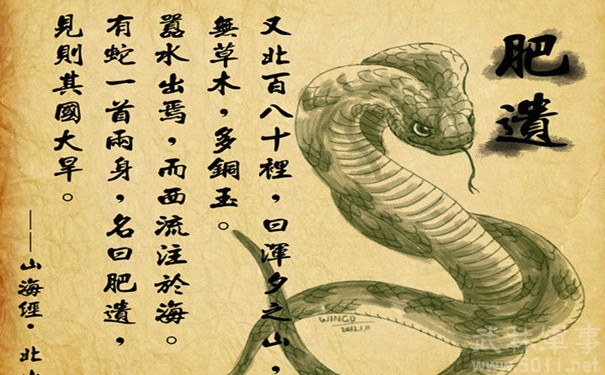 肥遺
又北百八十裡，曰渾夕之山，
無草木，多銅玉。
囂水出焉，而西流注於海。
有蛇一首兩身，名曰肥遺，
見則其國大旱。
——山海經·北山
WINGD
2012.1.11
武林軍事
www.3011.net